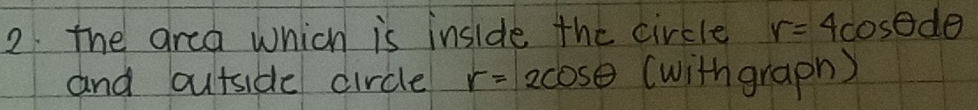 2. The area which is inside the circle r=4cosθdθ
and outside circle r=2cosθ (with graph)